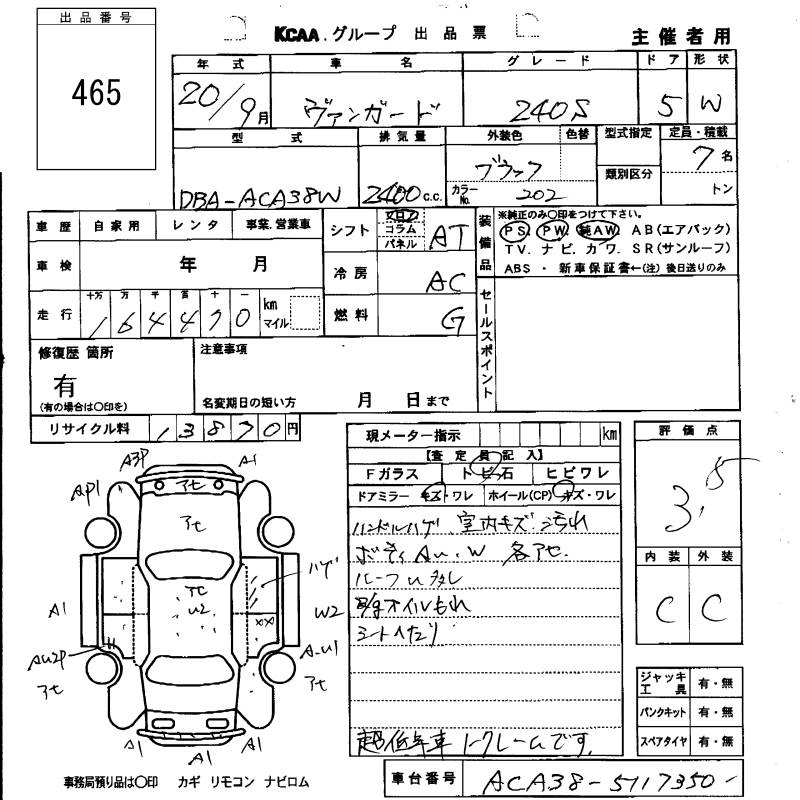 出品番号
465
KCAA.グループ 出品票
主催者用
年式 車名 グレード ドア 形状
20/9月 ヴァンガード 240S 5 W
型式 排気量 外装色 色替 型式指定 定員・積載
DBA-ACA38W 2400c.c. ブラック 7名
カラーNo. 202 類別区分 トン
車歴 自家用 レンタ 事業.営業車
シフト フロア コラム パネル AT
装備品
※純正のみ○印をつけて下さい。
PS. PW. 純AW. AB(エアバック)
TV. ナビ. カワ. SR(サンルーフ)
ABS ・ 新車保証書←(注) 後日送りのみ
車検 年 月
冷房 AC
走行 十万 万 千 百 十 一
164470 km マイル
燃料 G
セールスポイント
修復歴 箇所
有
(有の場合は○印を)
注意事項
名変期日の短い方 月 日まで
リサイクル料 13870円
現メーター指示 km
【査定員記入】
Fガラス トビ石 ヒビワレ
ドアミラー キズ・ワレ ホイール(CP) キズ・ワレ
ハンドルハゲ 室内キズ 汚れ
ボディAU.W 各アセ.
ルーフU多し
オイルもれ
シートへたり
超低年車 ノークレームです.
評価点
3.5
内装 外装
C C
ジャッキ工具 有・無
パンクキット 有・無
スペアタイヤ 有・無
A3P A1
AP1 アセ
アセ
アセ ハゲ
U2
A1 W2
XX
AU2P A.U1
アセ アセ
A1 A1 A1
事務局預り品は○印 カギ リモコン ナビロム
車台番号 ACA38-5117350-